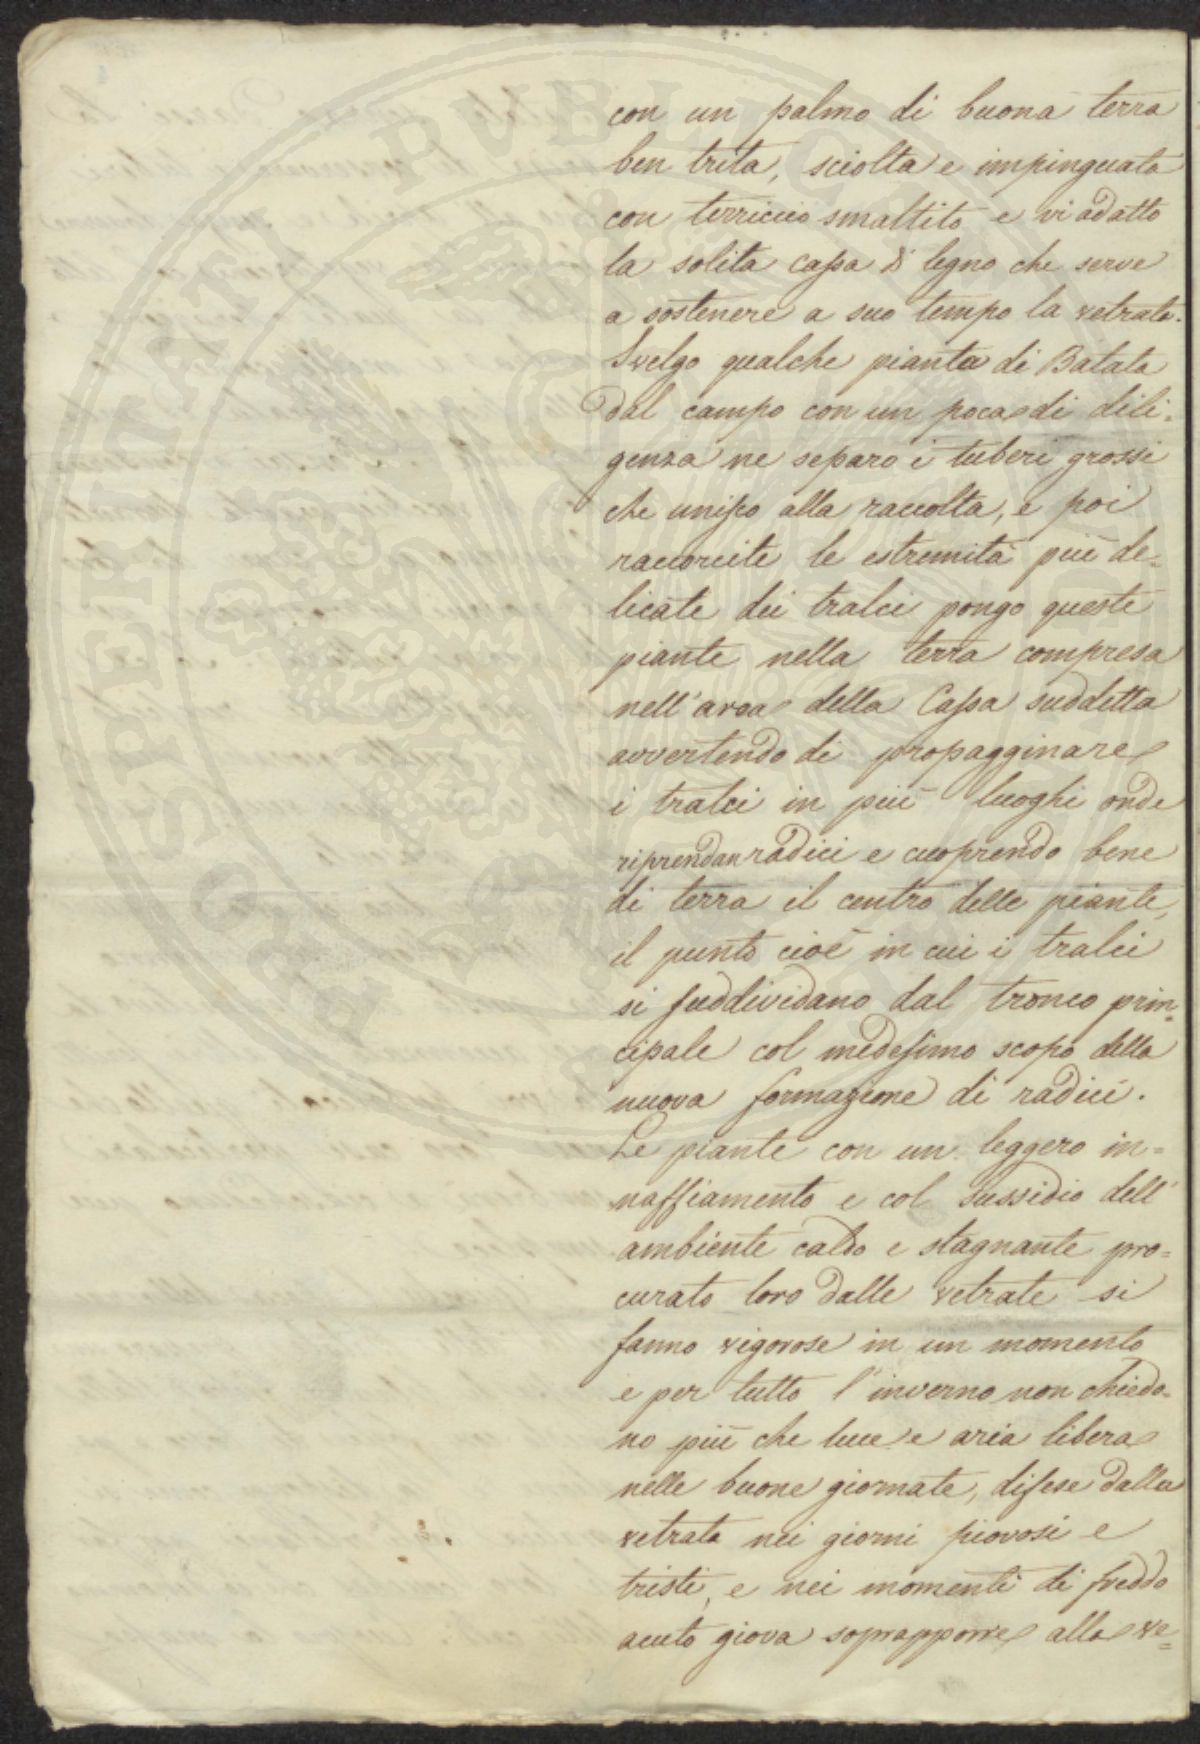 con un palmo di buona terra
ben trita, sciolta e impinguata
con terriccio smaltito e vi adatto
la solita cassa di legno che serve
a sostenere a suo tempo la vetrata.
Svelgo qualche pianta di Batata
dal campo con un poca di dili-
genza ne separo i tuberi grossi
che unisco alla raccolta, e poi
raccorcite le estremità più de=
licate dei tralci pongo queste
piante nella terra compresa
nell'area della Cassa suddetta
avvertendo di propagginare
i tralci in più luoghi onde
riprendan radici e cuoprendo bene
di terra il centro delle piante,
il punto cioè in cui i tralci
si suddividano dal tronco prin=
cipale col medesimo scopo della
nuova formazione di radici.
Le piante con un leggero in=
naffiamento e col sussidio dell'
ambiente caldo e stagnante pro=
curato loro dalle vetrate si
fanno vigorose in un momento
e per tutto l'inverno non chiedo-
no più che luce e aria libera
nelle buone giornate, difese dalla
vetrata nei giorni piovosi e
tristi, e nei momenti di freddo
acuto giova soprapporre alla ve=
PROSPERITATI PVBLICAE